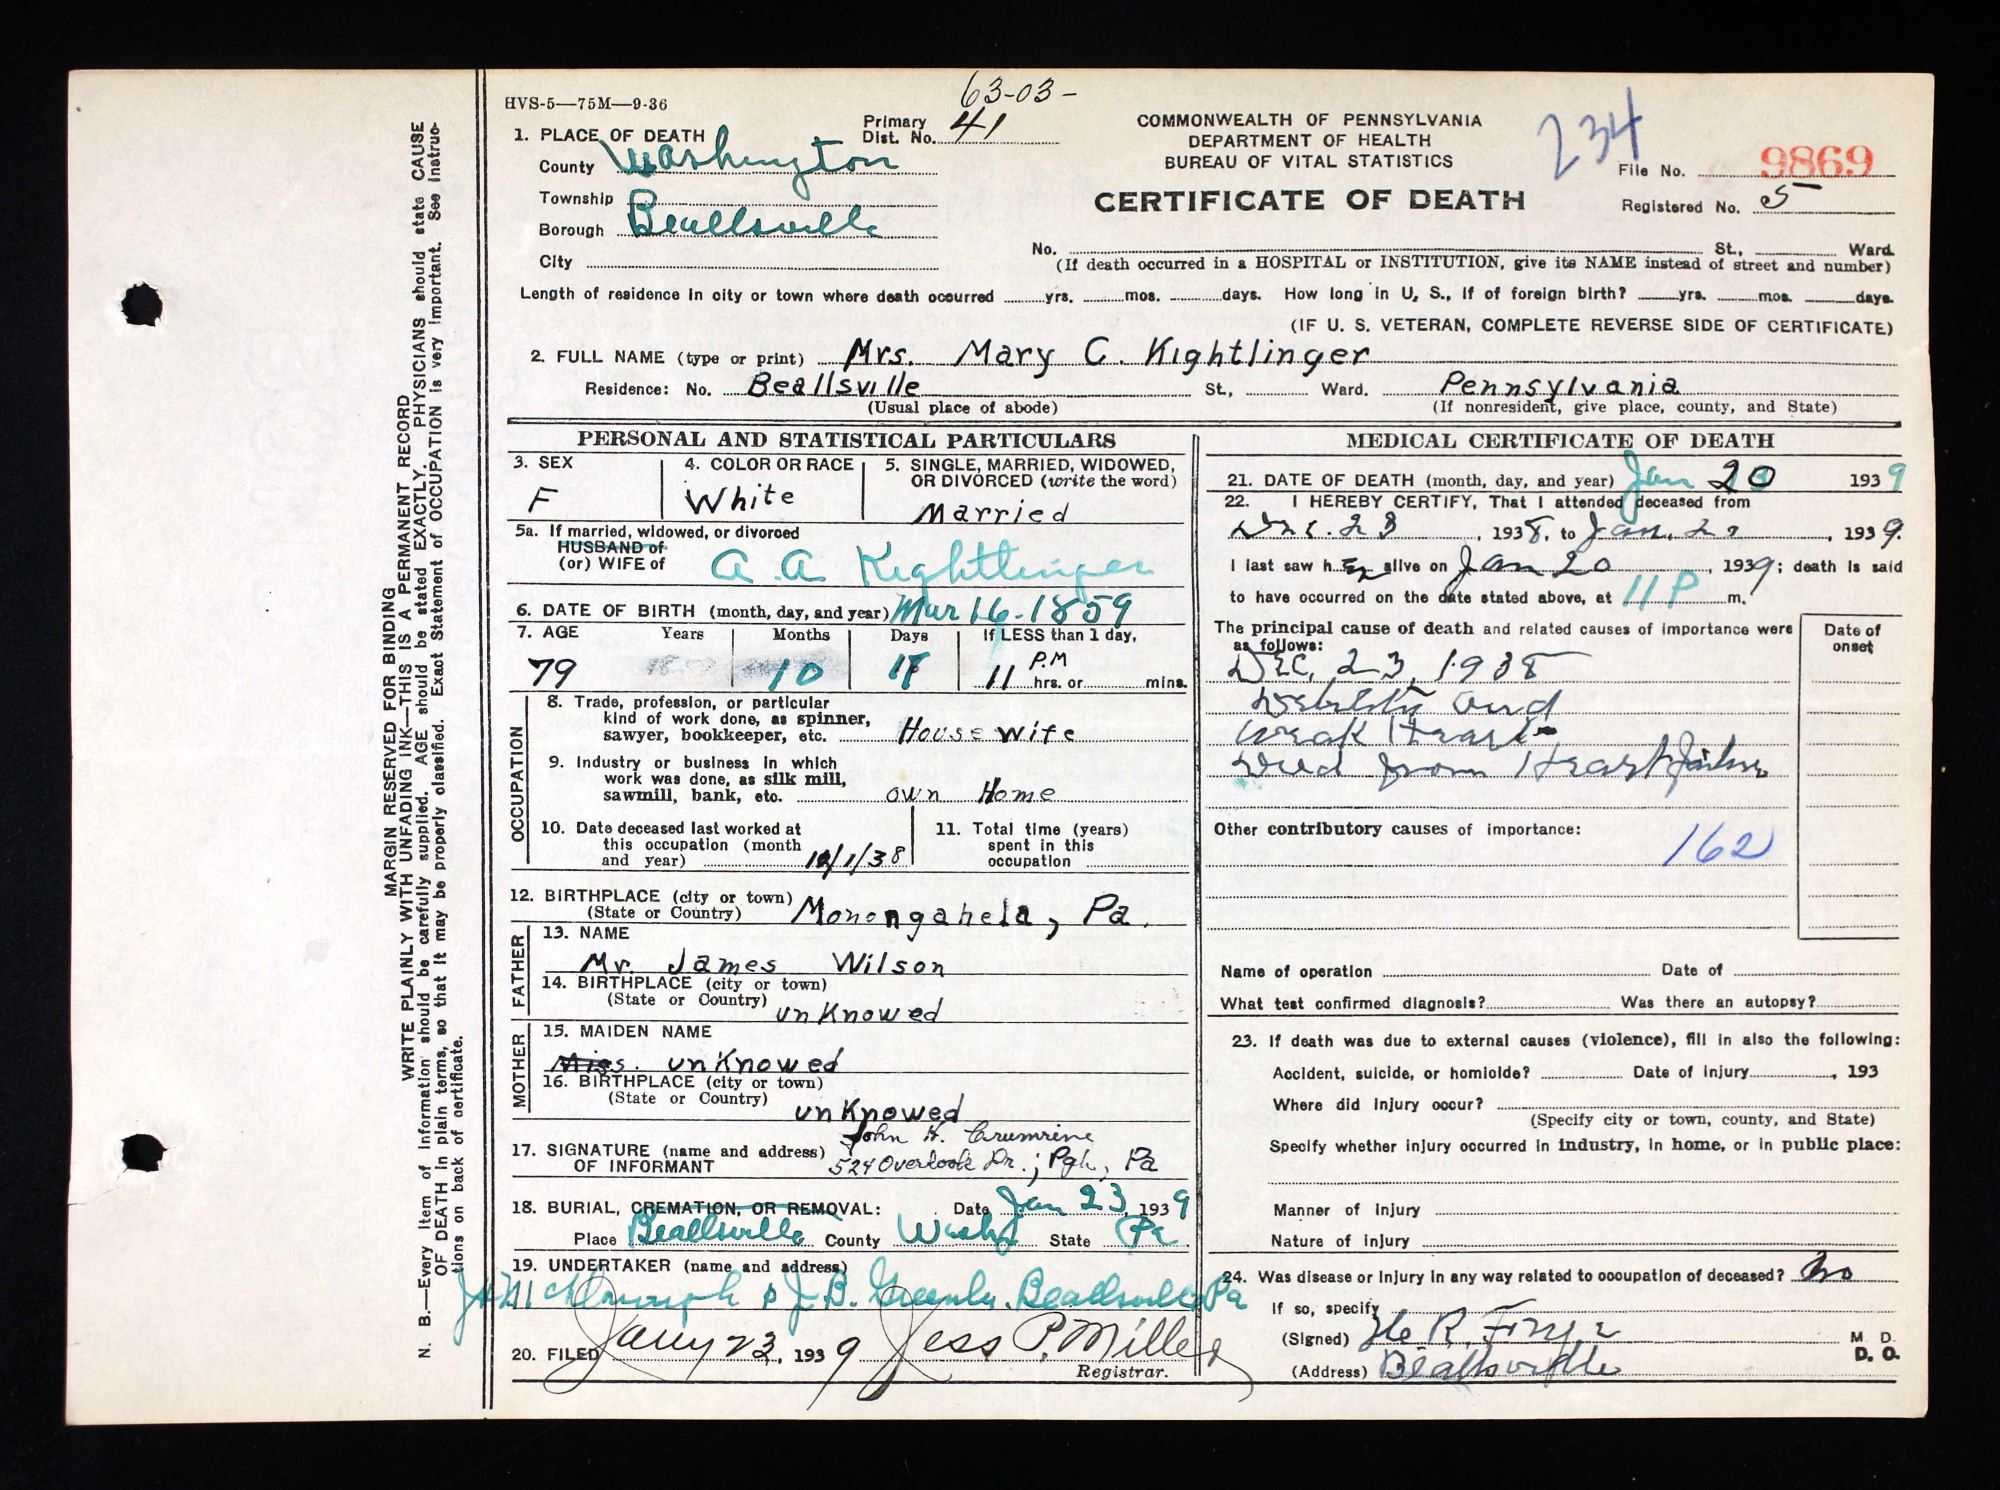 HVS-5—75M—9-36
63-03-
Primary Dist. No. 41
COMMONWEALTH OF PENNSYLVANIA
DEPARTMENT OF HEALTH
BUREAU OF VITAL STATISTICS
CERTIFICATE OF DEATH
234
File No. 9869
Registered No. 5
1. PLACE OF DEATH
County Washington
Township
Borough Beallsville
City
No. St., Ward.
(If death occurred in a HOSPITAL or INSTITUTION, give its NAME instead of street and number)
Length of residence in city or town where death occurred yrs. mos. days. How long in U. S., if of foreign birth? yrs. mos. days.
(IF U. S. VETERAN, COMPLETE REVERSE SIDE OF CERTIFICATE)
2. FULL NAME (type or print) Mrs. Mary C. Kightlinger
Residence: No. Beallsville St., Ward. Pennsylvania
(Usual place of abode) (If nonresident, give place, county, and State)
PERSONAL AND STATISTICAL PARTICULARS
3. SEX
F
4. COLOR OR RACE
White
5. SINGLE, MARRIED, WIDOWED,
OR DIVORCED (write the word)
Married
5a. If married, widowed, or divorced
HUSBAND of
(or) WIFE of A. A. Kightlinger
6. DATE OF BIRTH (month, day, and year) Mar 16-1859
7. AGE Years Months Days If LESS than 1 day,
79 10 11 P.M hrs. or mins.
OCCUPATION
8. Trade, profession, or particular
kind of work done, as spinner,
sawyer, bookkeeper, etc. House wife
9. Industry or business in which
work was done, as silk mill,
sawmill, bank, etc. own Home
10. Date deceased last worked at
this occupation (month
and year) 12/1/38
11. Total time (years)
spent in this
occupation
12. BIRTHPLACE (city or town)
(State or Country) Monongahela, Pa.
FATHER
13. NAME
Mr. James Wilson
14. BIRTHPLACE (city or town)
(State or Country) unKnowed
MOTHER
15. MAIDEN NAME
Miss. unKnowed
16. BIRTHPLACE (city or town)
(State or Country) unKnowed
17. SIGNATURE (name and address)
OF INFORMANT
John H. Crumrine
524 Overlook Dr.; Pgh, Pa
18. BURIAL, CREMATION, OR REMOVAL: Date Jan 23, 1939
Place Beallsville County Wash State Pa
19. UNDERTAKER (name and address)
J. B. Greenlee. Beallsville Pa
20. FILED Jany 23, 1939 Jess P. Miller
Registrar.
MEDICAL CERTIFICATE OF DEATH
21. DATE OF DEATH (month, day, and year) Jan 20 1939
22. I HEREBY CERTIFY, That I attended deceased from
Dec. 23, 1938, to Jan. 20, 1939.
I last saw her alive on Jan 20, 1939; death is said
to have occurred on the date stated above, at 11 P m.
The principal cause of death and related causes of importance were
as follows:
Date of
onset
Dec, 23, 1938
Debility and
Weak Heart
Died from Heart failure
Other contributory causes of importance:
162
Name of operation Date of
What test confirmed diagnosis? Was there an autopsy?
23. If death was due to external causes (violence), fill in also the following:
Accident, suicide, or homicide? Date of injury , 193
Where did injury occur?
(Specify city or town, county, and State)
Specify whether injury occurred in industry, in home, or in public place:
Manner of injury
Nature of injury
24. Was disease or injury in any way related to occupation of deceased? No
If so, specify
(Signed) M. D.
D. O.
(Address) Beallsville
MARGIN RESERVED FOR BINDING
WRITE PLAINLY WITH UNFADING INK—THIS IS A PERMANENT RECORD
N. B.—Every item of information should be carefully supplied. AGE should be stated EXACTLY. PHYSICIANS should state CAUSE
OF DEATH in plain terms, so that it may be properly classified. Exact Statement of OCCUPATION is very important. See instruc-
tions on back of certificate.